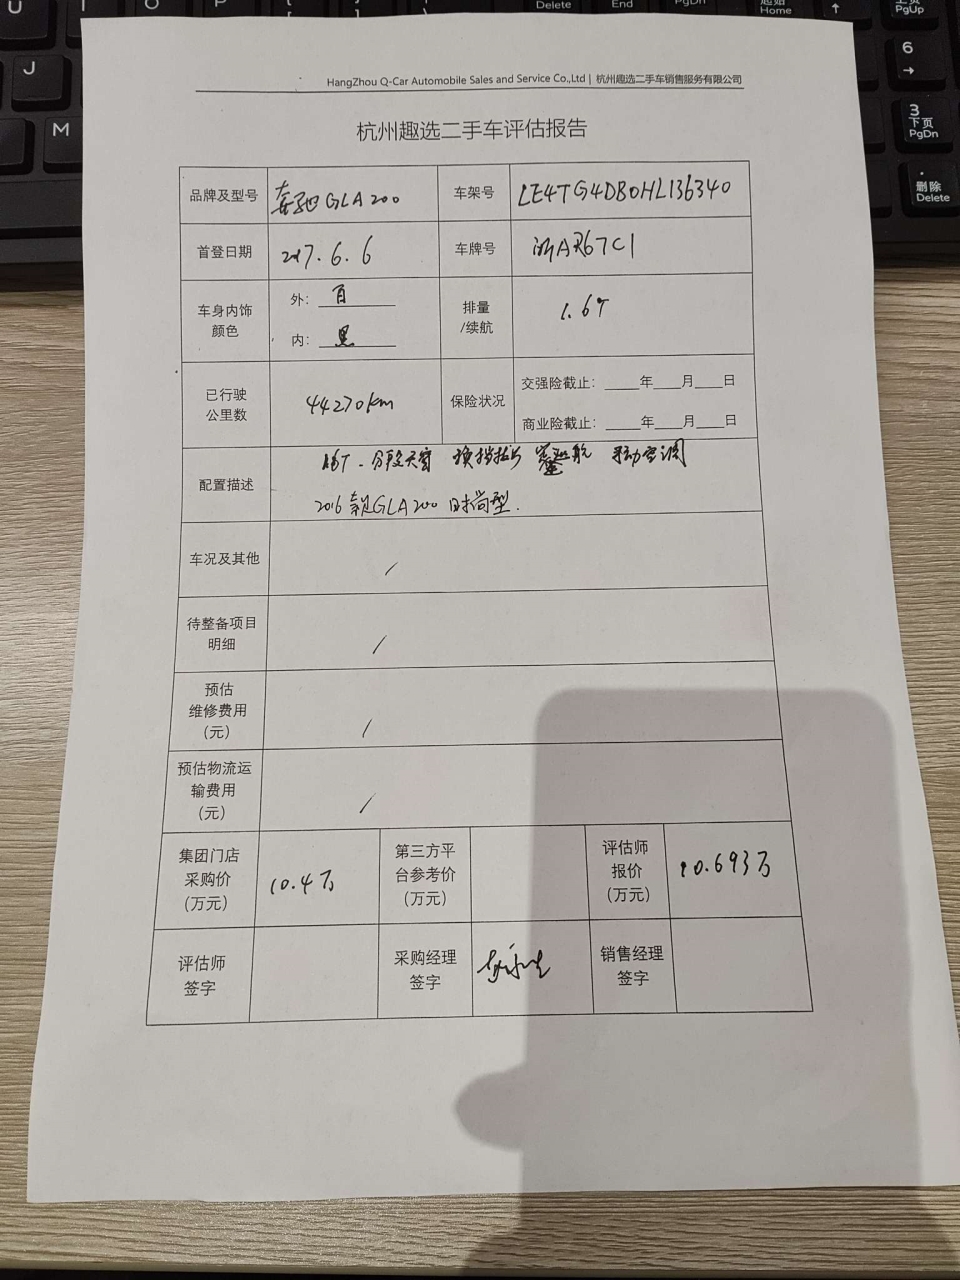 HangZhou Q-Car Automobile Sales and Service Co.,Ltd | 杭州趣选二手车销售服务有限公司
杭州趣选二手车评估报告
品牌及型号 奔驰GLA200 车架号 LE4TG4DB0HL136340
首登日期 2017.6.6 车牌号 浙AR67C1
车身内饰颜色 外: 白 内: 黑 排量/续航 1.6T
已行驶公里数 44270km 保险状况 交强险截止: ____年___月___日
商业险截止: ____年___月___日
配置描述 1.6T. 分段天窗 换挡拨片 定速巡航 手动空调
2016款GLA200 时尚型.
车况及其他 /
待整备项目明细 /
预估维修费用(元) /
预估物流运输费用(元) /
集团门店采购价(万元) 10.4万 第三方平台参考价(万元) 评估师报价(万元) 10.693万
评估师签字 采购经理签字 销售经理签字
U
I
O
P
J
M
Delete
End
PgDn
起始
Home
↑
上页
PgUp
6
→
3
下页
PgDn
.
删除
Delete